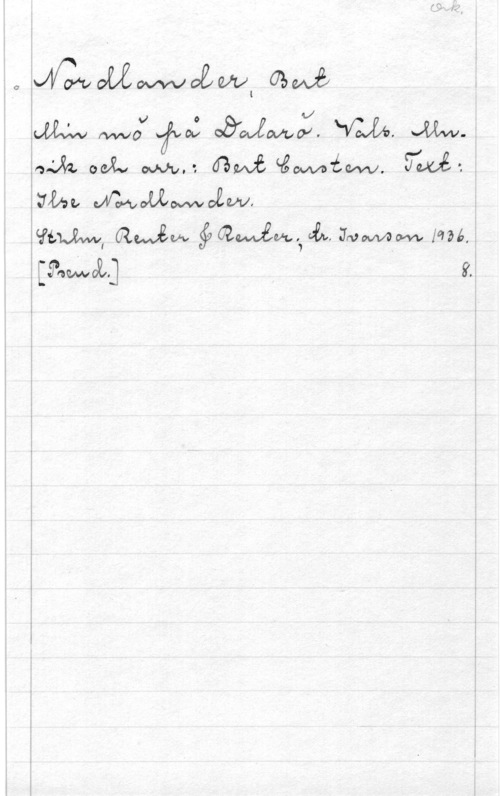 Ork.
Nordlander, Bert
Min mö på Dalarö. Vals. Mu-
sik och arr.: Bert Carsten. Text:
Ilse Nordlander.
Sthlm, Reuter & Reuter; tr. Ivarson 1936.
[Pseud.] 8.